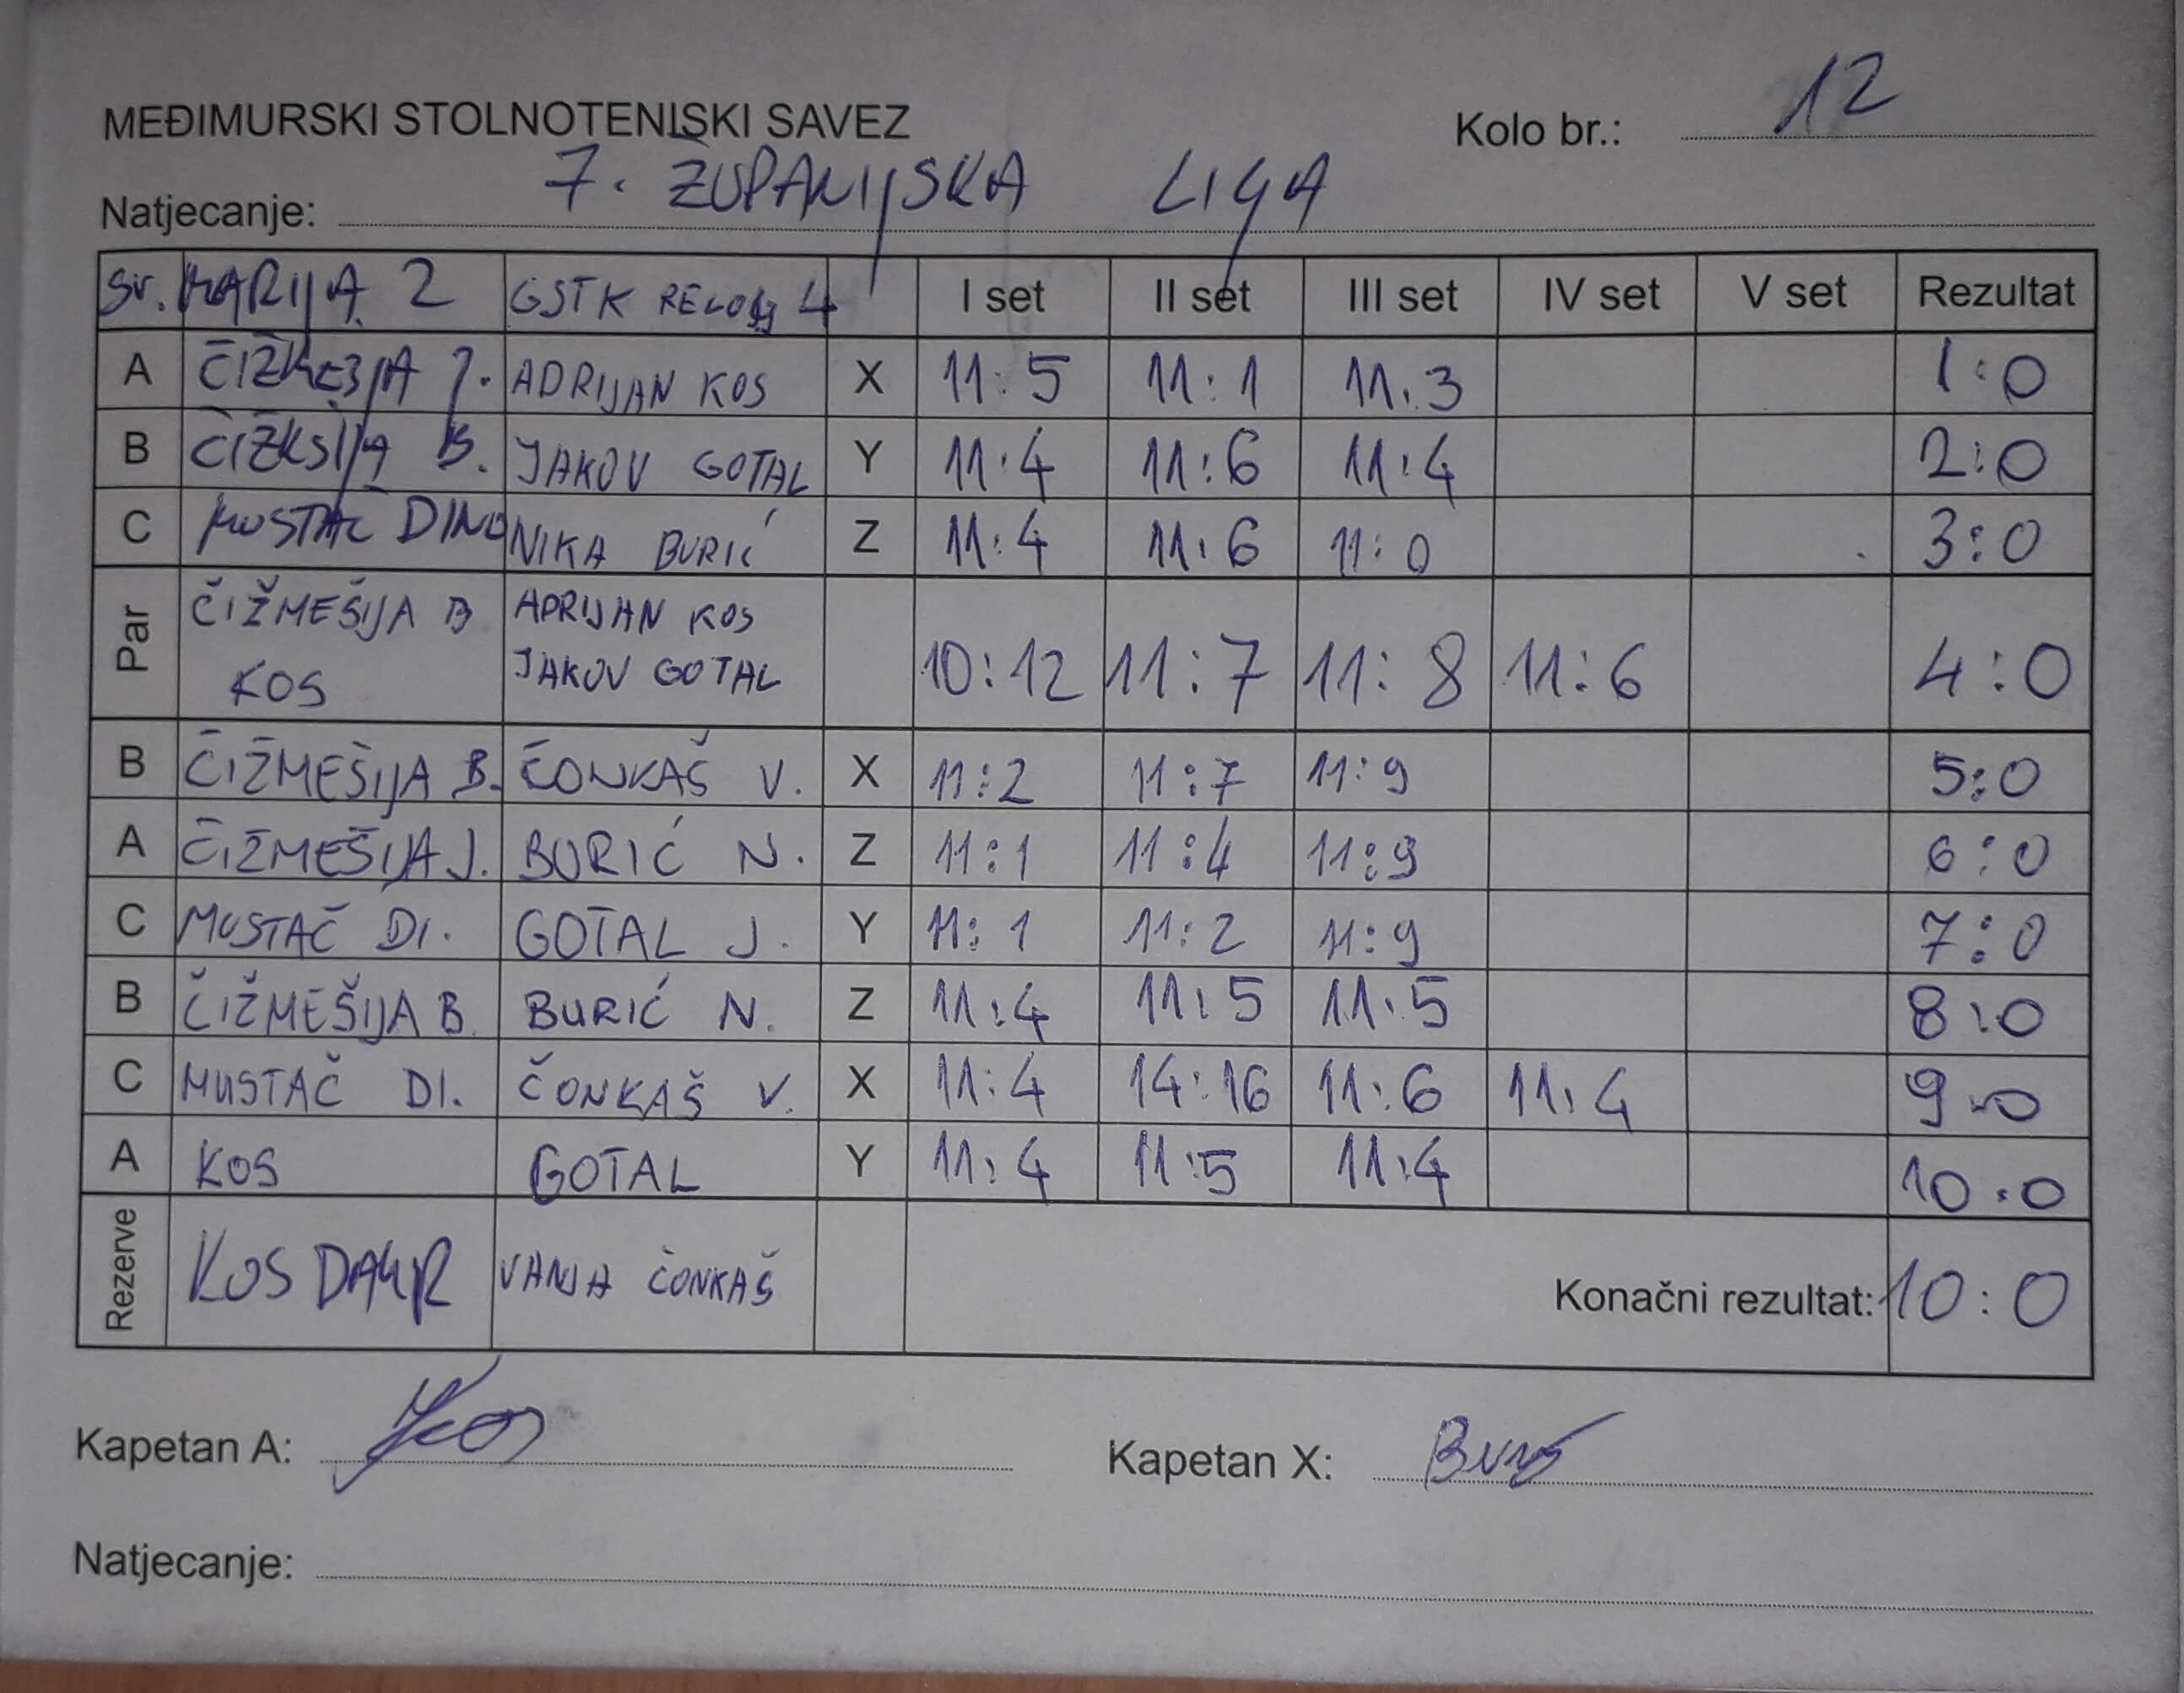 MEĐIMURSKI STOLNOTENISKI SAVEZ Kolo br.: 12
Natjecanje: 7. ŽUPANIJSKA LIGA
SV. MARIJA 2 GSTK 4 I set II set III set IV set V set Rezultat
A J. ADRIJAN KOS X 11:5 11:1 11:3 1:0
B B. JAKOV GOTAL Y 11:4 11:6 11:4 2:0
C MUSTAČ DINO NIKA BURIĆ Z 11:4 11:6 11:0 3:0
Par ČIŽMEŠIJA B KOS ADRIJAN KOS JAKOV GOTAL 10:12 11:7 11:8 11:6 4:0
B ČIŽMEŠIJA B. ČONKAŠ V. X 11:2 11:7 11:9 5:0
A ČIŽMEŠIJA J. BURIĆ N. Z 11:1 11:4 11:9 6:0
C MUSTAČ DI. GOTAL J. Y 11:1 11:2 11:9 7:0
B ČIŽMEŠIJA B. BURIĆ N. Z 11:4 11:5 11:5 8:0
C MUSTAČ DI. ČONKAŠ V. X 11:4 14:16 11:6 11:4 9:0
A KOS GOTAL Y 11:4 11:5 11:4 10:0
Rezerve KOS DAMIR VANJA ČONKAŠ Konačni rezultat: 10:0
Kapetan A: Kapetan X:
Natjecanje: